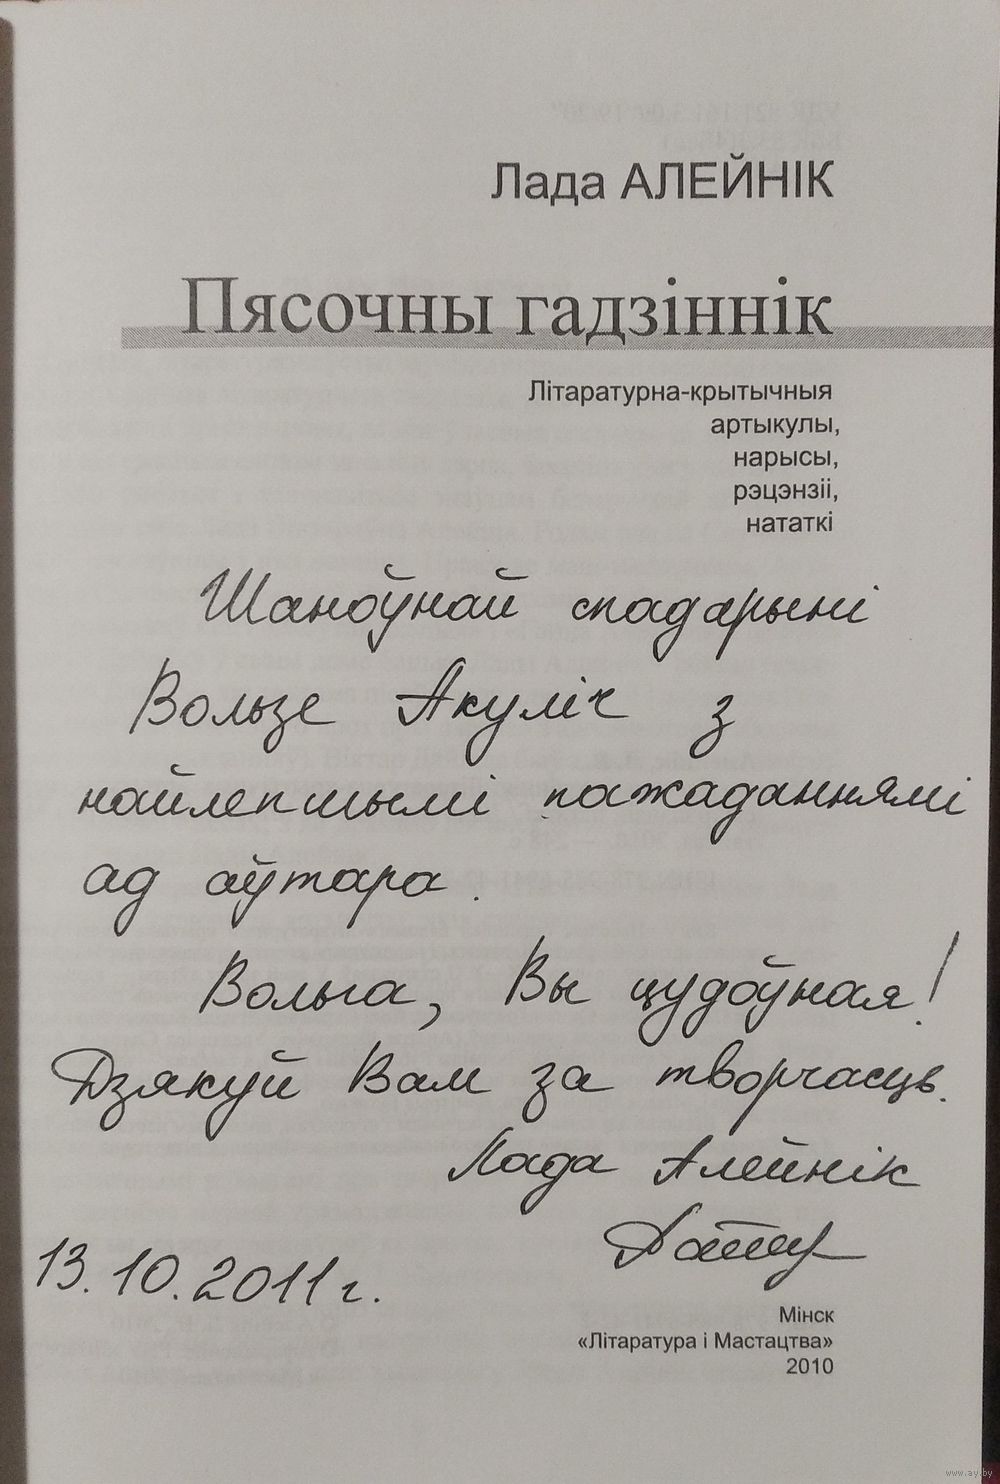 Лада АЛЕЙНІК
Пясочны гадзіннік
Літаратурна-крытычныя
артыкулы,
нарысы,
рэцэнзіі,
нататкі
Шаноўнай спадарыні
Вользе Акуліч з
найлепшымі пажаданнямі
ад аўтара.
Вольга, Вы цудоўная!
Дзякуй Вам за творчасць.
Лада Алейнік
13.10.2011 г.
Мінск
«Літаратура і Мастацтва»
2010
www.ay.by